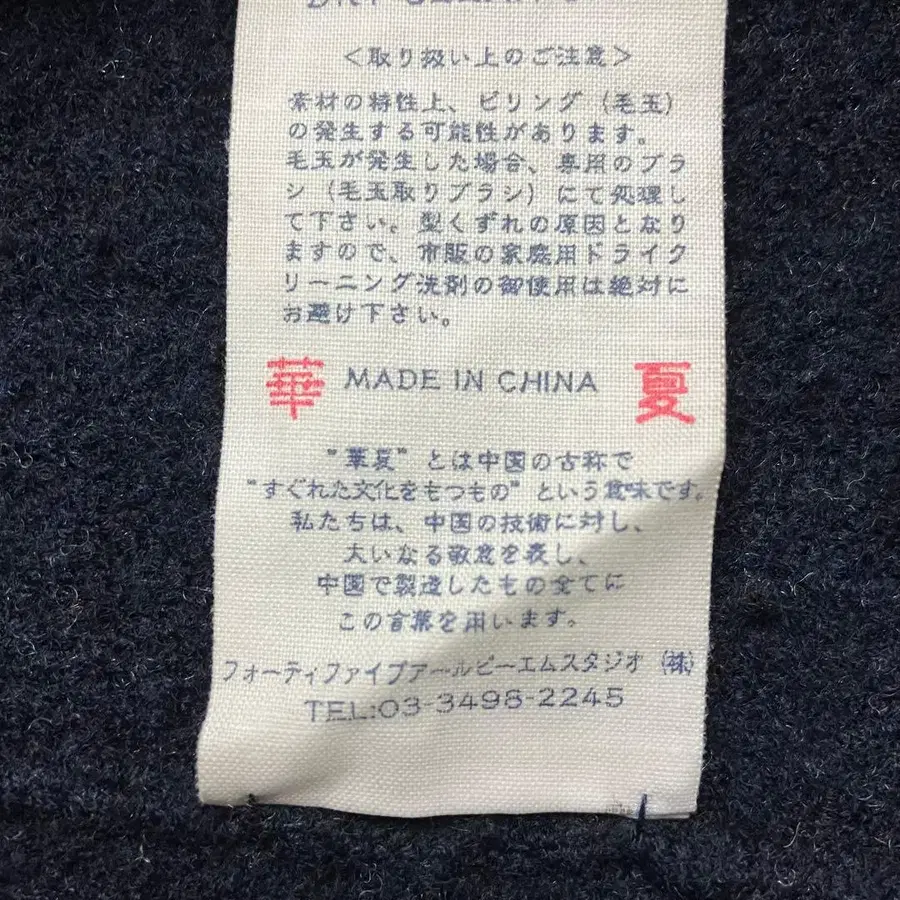 ＜取り扱い上のご注意＞
素材の特性上、ピリング（毛玉）
の発生する可能性があります。
毛玉が発生した場合、専用のブラ
シ（毛玉取りブラシ）にて処理し
て下さい。型くずれの原因となり
ますので、市販の家庭用ドライク
リーニング洗剤の御使用は絶対に
お避け下さい。
華 MADE IN CHINA 夏
"華夏"とは中国の古称で
"すぐれた文化をもつもの"という意味です。
私たちは、中国の技術に対し、
大いなる敬意を表し、
中国で製造したもの全てに
この言葉を用います。
フォーティファイブアールピーエムスタジオ（株）
TEL:03-3498-2245